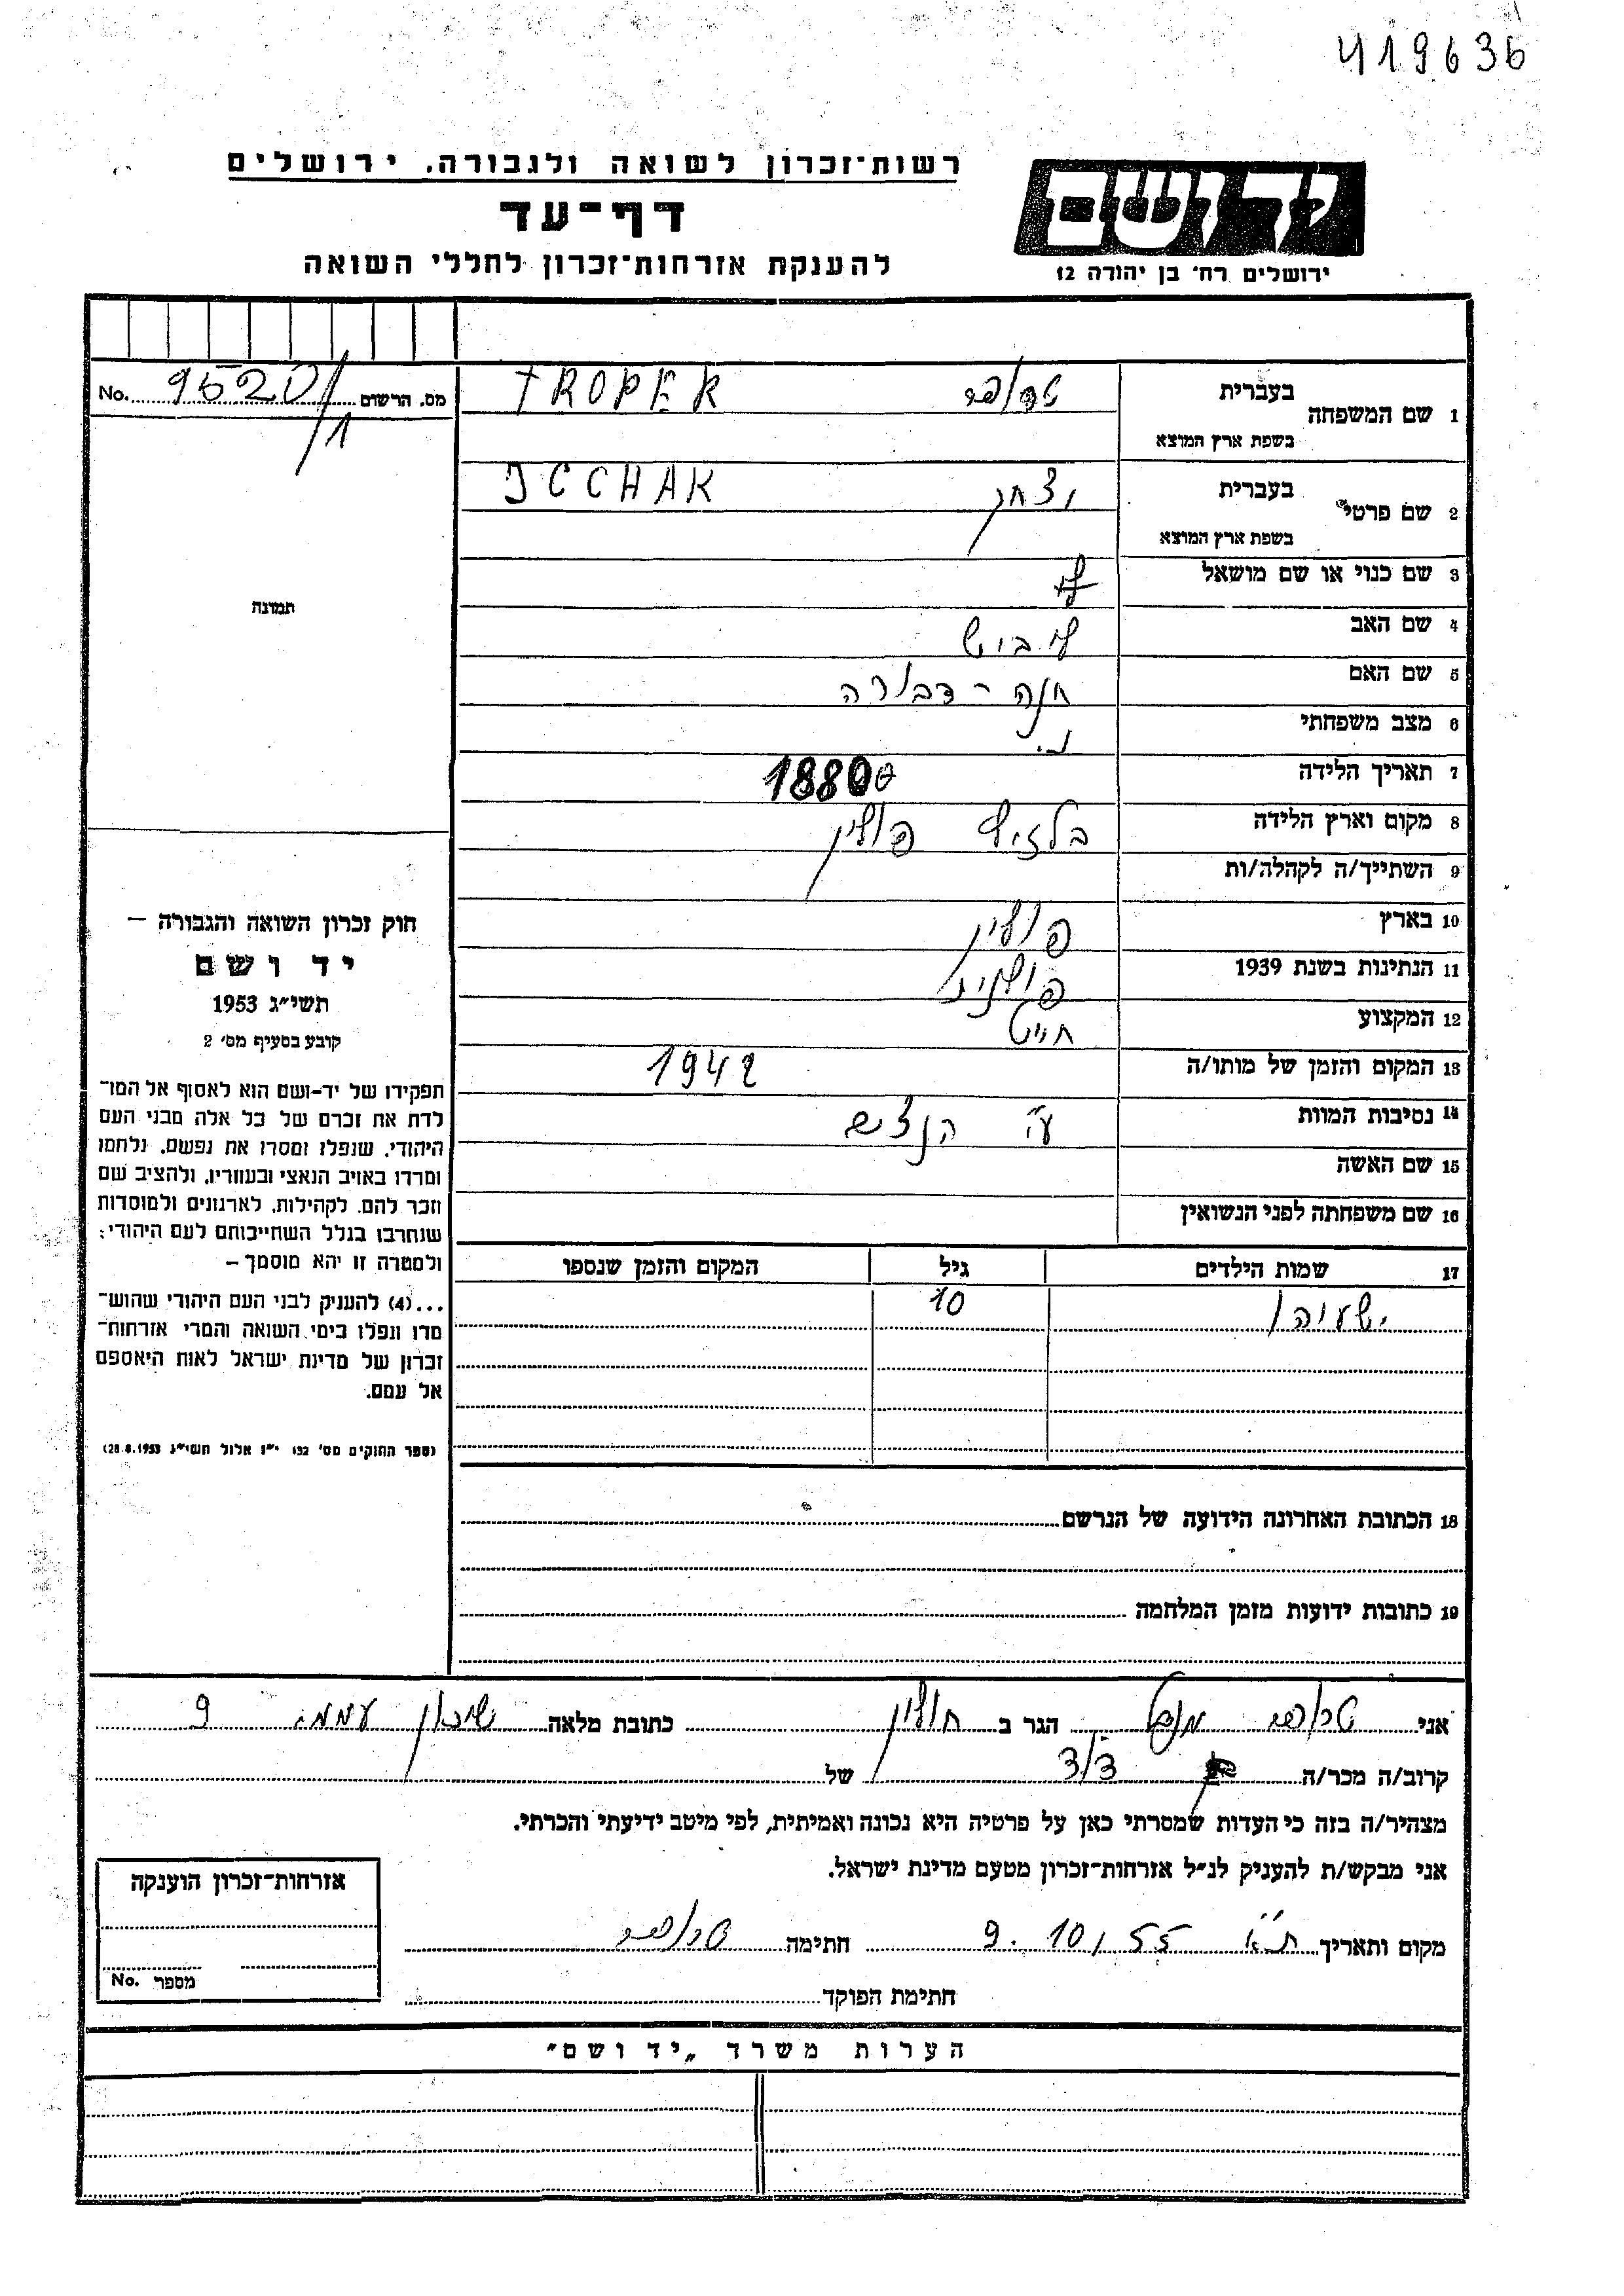 419636
יד ושם
ירושלים רח' בן יהודה 12
רשות־זכרון לשואה ולגבורה, ירושלים
דף־עד
להענקת אזרחות־זכרון לחללי השואה
1 שם המשפחה
בעברית
TROPER
בשפת ארץ המוצא
2 שם פרטי
בעברית יצחק
ICCHAK
בשפת ארץ המוצא
3 שם כנוי או שם מושאל
4 שם האב לייביש
5 שם האם חנה - דבורה
6 מצב משפחתי נ.
7 תאריך הלידה 1880
8 מקום וארץ הלידה פולין
9 השתייך/ה לקהלה/ות
10 בארץ פולין
11 הנתינות בשנת 1939 פולנית
12 המקצוע חייט
13 המקום והזמן של מותו/ה 1942
14 נסיבות המוות ע"י
15 שם האשה
16 שם משפחתה לפני הנשואין
17 שמות הילדים גיל המקום והזמן שנספו
ישעיהו 10
18 הכתובת האחרונה הידועה של הנרשם
19 כתובות ידועות מזמן המלחמה
No. 9520/1 מס. הרשום
תמונה
חוק זכרון השואה והגבורה —
יד ושם
תשי"ג 1953
קובע בסעיף מס' 2
תפקידו של יד-ושם הוא לאסוף אל המו־
לדת את זכרם של כל אלה מבני העם
היהודי, שנפלו ומסרו את נפשם, נלחמו
ומרדו באויב הנאצי ובעוזריו, ולהציב שם
וזכר להם, לקהילות, לארגונים ולמוסדות
שנחרבו בגלל השתייכותם לעם היהודי;
ולמטרה זו יהא מוסמך —
...(4) להעניק לבני העם היהודי שהוש־
מדו ונפלו בימי השואה והמרי אזרחות־
זכרון של מדינת ישראל לאות היאספם
אל עמם.
(ספר החוקים מס' 132 י"ז אלול תשי"ג 28.8.1953)
אני הגר ב חולון כתובת מלאה שיכון עממי 9
קרוב/ה מכר/ה של
מצהיר/ה בזה כי העדות שמסרתי כאן על פרטיה היא נכונה ואמיתית, לפי מיטב ידיעתי והכרתי.
אני מבקש/ת להעניק לנ"ל אזרחות־זכרון מטעם מדינת ישראל.
מקום ותאריך ת"א 9.10.55 חתימה
חתימת הפוקד
אזרחות־זכרון הוענקה
מספר No.
הערות משרד „יד ושם"